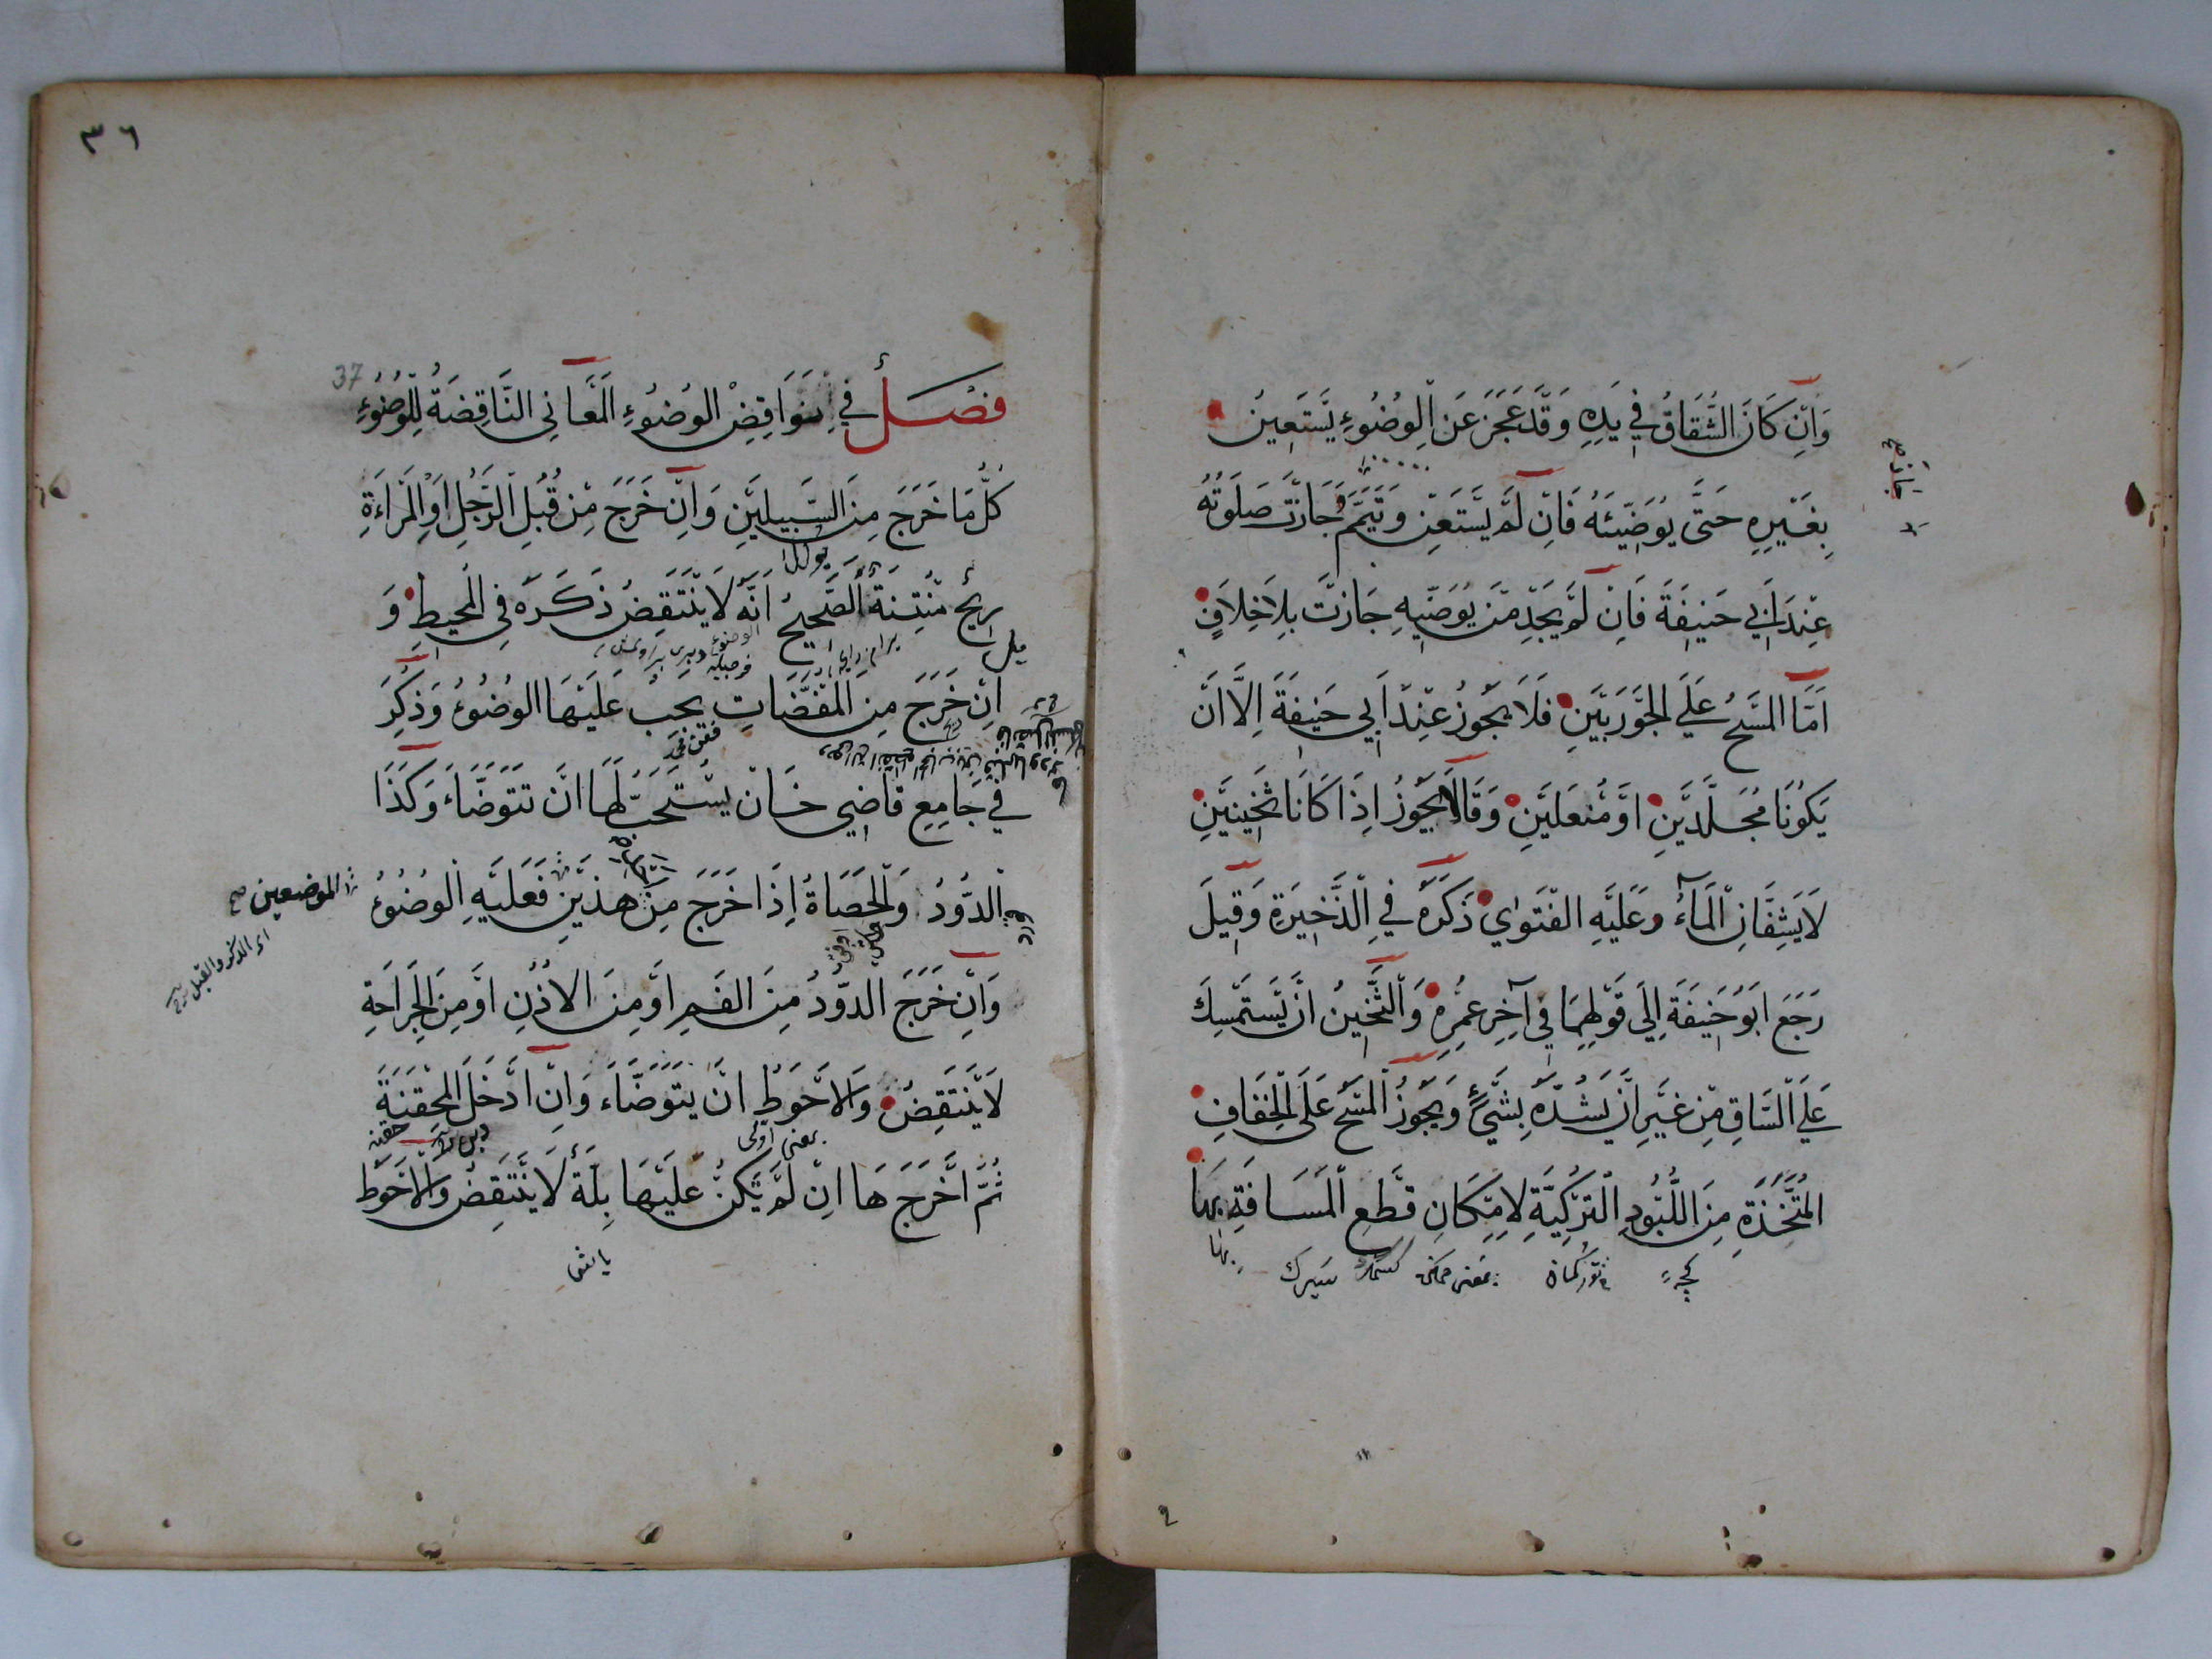 وَاِنْ كَانَ الشُّقَاقُ فِي يَدِهِ وَقَدْ عَجَزَ عَنِ الْوُضُوءِ يَسْتَعِينُ
بِغَيْرِهِ حَتَّى يُوَضِّئَهُ فَاِنْ لَمْ يَسْتَعِنْ وَتَيَمَّمَ جَازَتْ صَلَوتُهُ
عِنْدَ اَبِي حَنِيفَةَ فَاِنْ لَمْ يَجِدْ مَنْ يُوَضِّيهِ جَازَتْ بِلَا خِلَافٍ
اَمَّا الْمَسْحُ عَلَي الْجَوْرَبَيْنِ فَلَا يَجُوزُ عِنْدَ اَبِي حَنِيفَةَ اِلَّا اَنْ
يَكُونَا مُجَلَّدَيْنِ اَوْ مُنَعَلَيْنِ وَقَالَا يَجُوزُ اِذَا كَانَا ثَخِينَيْنِ
لَا يَشِفَّانِ الْمَآءَ وَعَلَيْهِ الْفَتْوٰي ذَكَرَهُ فِي الذَّخِيرَةِ وَقِيلَ
رَجَعَ اَبُو حَنِيفَةَ اِلَى قَوْلِهِمَا فِي آخِرِ عُمْرِهِ وَالثَّخِينُ اَنْ يَسْتَمْسِكَ
عَلَي السَّاقِ مِنْ غَيْرِ اَنْ يَشُدَّهُ بِشَيْءٍ وَيَجُوزُ الْمَسْحُ عَلَى الْخِفَافِ
الْمُتَّخَذَةِ مِنَ اللُّبُودِ التُّرْكِيَّةِ لِاِمْكَانِ قَطْعِ الْمَسَافَةِ بِهَا
بها
٣٦
37
فَصْلٌ فِي نَوَاقِضِ الْوُضُوءِ اَلْمَعَانِي النَّاقِضَةُ لِلْوُضُوءِ
كُلُّ مَا خَرَجَ مِنَ السَّبِيلَيْنِ وَاِنْ خَرَجَ مِنْ قُبُلِ الرَّجُلِ اَوِ الْمَرْاَةِ
رِيحٌ مُنْتِنَةٌ اَلصَّحِيحُ اَنَّهُ لَا يَنْتَقِضُ ذَكَرَهُ فِي الْمُحِيطِ وَ
اِنْ خَرَجَ مِنَ الْمُفْضَاتِ يَجِبُ عَلَيْهَا الْوُضُوءُ وَذُكِرَ
فِي جَامِعِ قَاضِي خَانْ يُسْتَحَبُّ لَهَا اَنْ تَتَوَضَّاَ وَكَذَا
الدُّودُ وَالْحَصَاةُ اِذَا خَرَجَ مِنْ هٰذَيْنِ فَعَلَيْهِ الْوُضُوءُ
الموضعين صح
اى الدكر والقبل
وَاِنْ خَرَجَ الدُّودُ مِنَ الْفَمِ اَوْ مِنَ الْاُذُنِ اَوْ مِنَ الْجِرَاحَةِ
لَا يَنْتَقِضُ وَالْاَحْوَطُ اَنْ يَتَوَضَّاَ وَاِنْ اَدْخَلَ الْمِحْقَنَةَ
ثُمَّ اَخْرَجَهَا اِنْ لَمْ يَكُنْ عَلَيْهَا بِلَّةٌ لَا يَنْتَقِضُ وَالْاَحْوَطُ